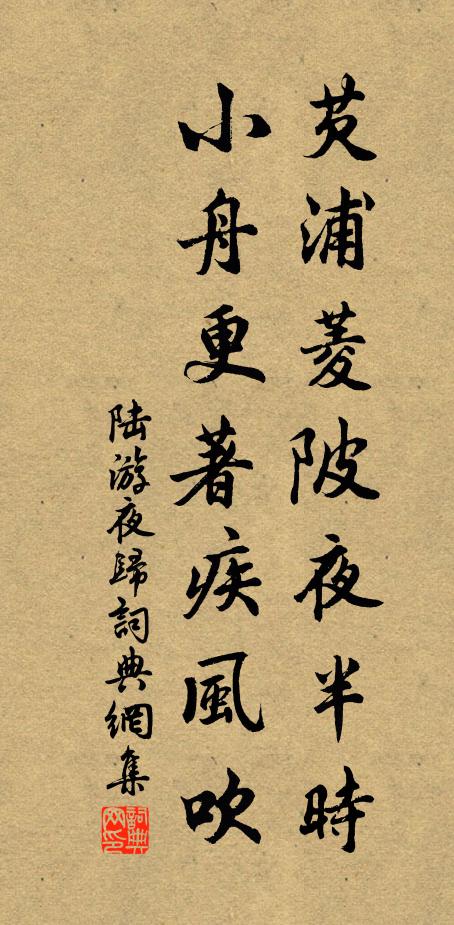 芡浦菱陂夜半時
小舟更著疾風吹
陆游夜歸詞典網集
詞典网印